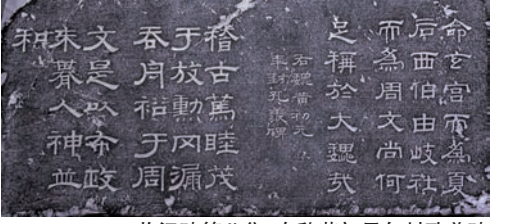 命玄宮而為夏
后西伯由岐社
而為周文尚何
足稱於大魏哉
右魏黃初元
年封孔羨碑
稽古篤睦茂
于放勳网漏
吞舟裕于周
文是以布政
未朞人神並
和